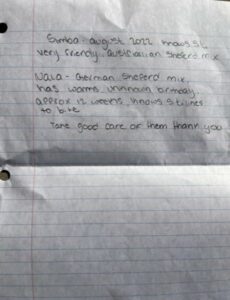 Simba - august 2022 knows sit
very friendly. australian sheperd mix
Nala - German sheperd mix.
has worms, unknown birthday,
approx 12 weeks, knows
to bite
Take good care of them thank you